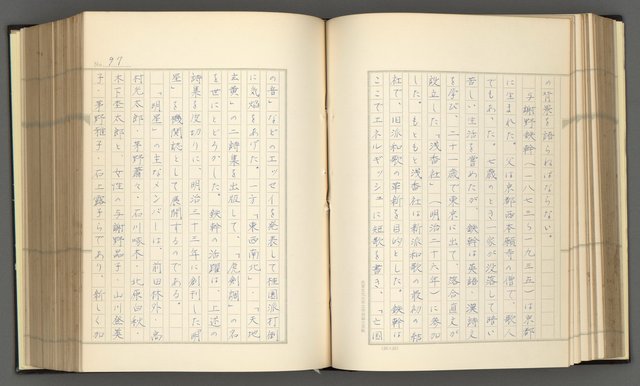 の背景を語らねばならない。
与謝野鉄幹（一八七三〜一九三五）は京都
に生まれた。父は京都西本願寺の僧で、歌人
でもあった。七歳のとき一家が没落して暗い
苦しい生活を嘗めたが、鉄幹は英語、漢語文
を学び、二十一歳で東京に出て、落合直文が
設立した「浅香社」（明治二十六年）に参加
した。もともと浅香社は新派和歌の最初の結
社で、旧派和歌の革新を目的とした。鉄幹は
ここでエネルギッシュに短歌を書き、「亡国
No. 97
の音」などのエッセイを発表して桂園派打倒
に気焔をあげた。一方「東西南北」、「天地
玄黄」の二詩集を出版して、「虎剣調」の名
を世にとどろかした。鉄幹の活躍は、上述の
詩集を皮切りに、明治三十三年に創刊した「明
星」を機関誌として展開するのである。
「明星」の主なメンバーは、前田林外・高
村光太郎・茅野蕭々・石川啄木・北原白秋・
木下杢太郎と、女性の与謝野晶子・山川登美
子・茅野雅子・石上露子らであり、新しく加